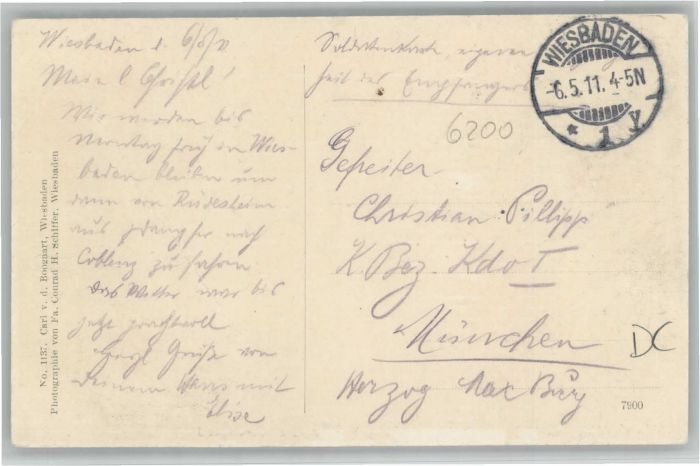 Wiesbaden d. 6/5/11
Mein l Christl!
Wir werden bis
Montag früh in Wies-
baden bleiben um
dann von Rüdesheim
aus p Dampfer nach
Coblenz zu fahren
Das Wetter war bis
jetzt prachtvoll
Herzl Grüße von
Deinem Hans mit
Elise
Soldatenkarte, eigene
heit des Empfängers
WIESBADEN
-6.5.11. 4-5N
* 1 y
6200
Gefreiter
Christian Pillipp
K. Bez. Kdo I
München
Herzog Max Burg
DC
7900
No. 1137. Carl v. d. Boogaart, Wiesbaden
Photographie von Fa. Conrad H. Schiffer, Wiesbaden